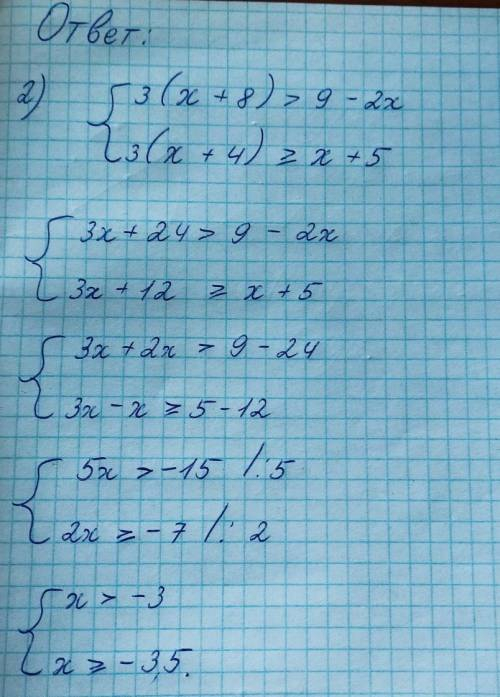 Ответ:
2) { 3(x + 8) > 9 - 2x
3(x + 4) ≥ x + 5
{ 3x + 24 > 9 - 2x
3x + 12 ≥ x + 5
{ 3x + 2x > 9 - 24
3x - x ≥ 5 - 12
{ 5x > -15 /: 5
2x ≥ -7 /: 2
{ x > -3
x ≥ -3,5.